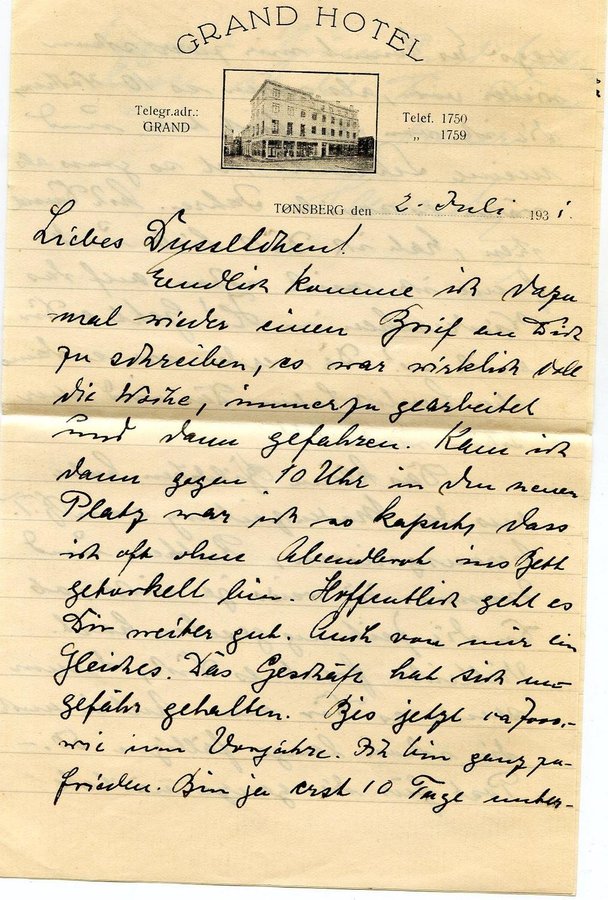 GRAND HOTEL
Telegr.adr.:
GRAND
Telef. 1750
„ 1759
TØNSBERG den 2. Juli 1931.
Liebes Dusselchen!
Endlich komme ich dazu
mal wieder einen Brief an Dich
zu schreiben, es war wirklich doll
die Woche, immerzu gearbeitet
und dann gefahren. Kam ich
dann gegen 10 Uhr in den neuen
Platz war ich so kaputt, dass
ich oft ohne Abendbrot ins Bett
getorkelt bin. Hoffentlich geht es
Dir weiter gut. Auch von mir ein
Gleiches. Das Geschäft hat sich un-
gefähr gehalten. Bis jetzt ca 7000.-
wie im Vorjahre. Ich bin ganz zu-
frieden. Bin ja erst 10 Tage unter-